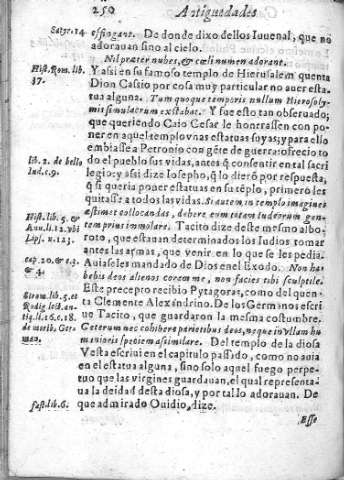 250 Antiguedades
Satyr. 14
espigant. De donde dixo dellos Iuuenal; que no
adorauan sino al cielo.
Nil præter nubes, & cœli numen adorant.
Hist. Rom. lib.
37.
Y assi en su famoso templo de Hierusalem quenta
Dion Cassio por cosa muy particular no auer esta
tua alguna. Tum quoque temporis nullum Hierosoly-
mis simulacrum extabat. Y fue esto tan obseruado;
que queriendo Caio Cesar le honrassen con po-
ner en aquel templo vnas estatuas suyas; y para ello
embiasse a Petronio con gẽte de guerra: ofrecio to
do el pueblo sus vidas, antes q̃ consentir en tal sacri
lib. 2. de bello
Iud. c. 9.
legio: y assi dize Iosepho, q̃ lo dierõ por respuesta,
q̃ si queria poner estatuas en su tẽplo, primero les
quitasse a todos las vidas. Si autem in templo imagines
Hist. lib. 5. &
Ann. li. 12. vbi
Lips. n. 123.
æstimet collocandas, debere eum totam Iudæorum gen-
tem prius immolare. Tacito dize deste mesmo albo-
roto, que estauan determinados los Iudios tomar
antes las armas, que venir en lo que se les pedia.
cap. 20. & 23.
& 4.
Auiaseles mandado de Dios en el Exodo. Non ha-
bebis deos alienos coram me, non facies tibi sculptile.
Strom. lib. 5. et
Rodig. lect. an-
tiq. li. 16. c. 18.
de morib. Ger-
man.
Este precepto recibio Pytagoras, como del quen-
ta Clemente Alexandrino. De los Germanos escri
ue Tacito, que guardaron la mesma costumbre.
Ceterum nec cohibere parietibus deos, neque in vllam hu
mani oris speciem assimilare. Del templo de la diosa
Vesta escriui en el capitulo passado, como no auia
en el estatua alguna, sino solo aquel fuego perpe-
tuo que las virgines guardauan, el qual representa-
ua la deidad desta diosa, y por tal lo adorauan. De
fast. lib. 6.
que admirado Ouidio, dize.
Esse